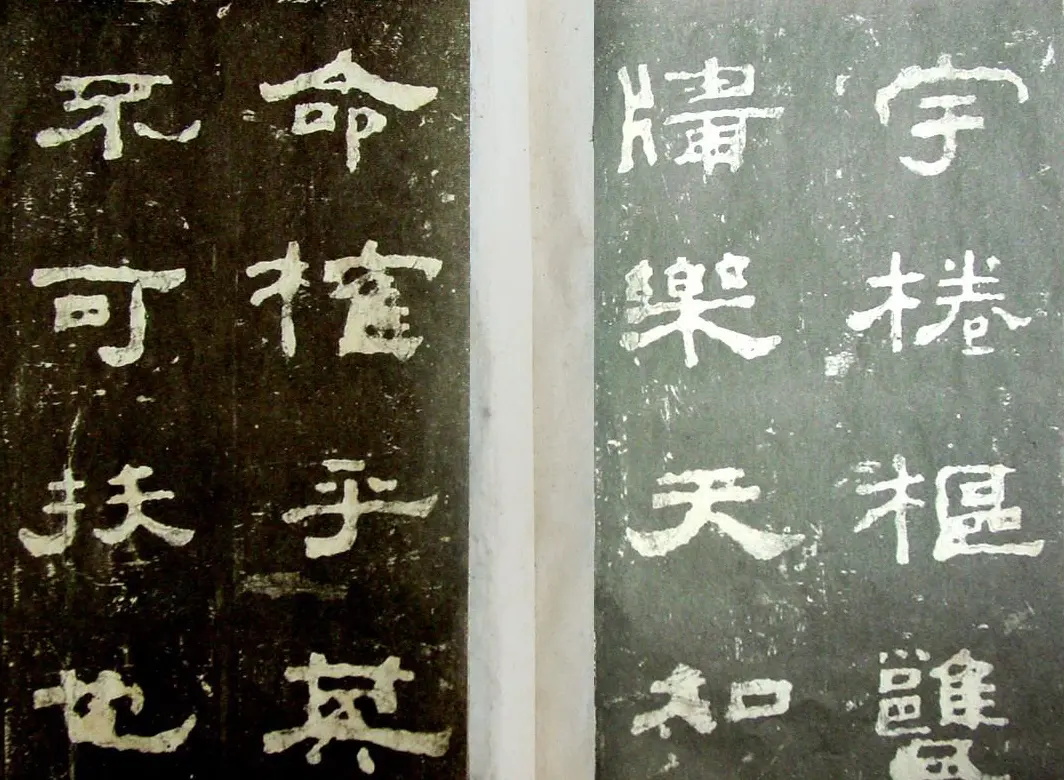 宇棬樞甕
牖樂天知
命榷乎其
不可拔也